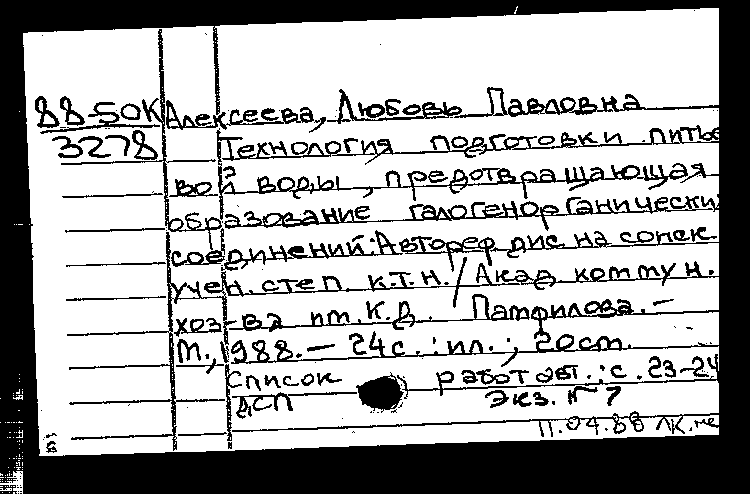 88-50К Алексеева, Любовь Павловна
3278 Технология подготовки питье
вой воды, предотвращающая
образование галогенорганически
соединений: Автореф дис. на соиск.
учен. степ. к.т.н. / Акад коммун.
хоз-ва им. К.Д. Памфилова. —
М., 1988. — 24с. : ил. ; 20см.
Список работ авт.: с. 23-24
ДСП Экз. № 7
11.04.88